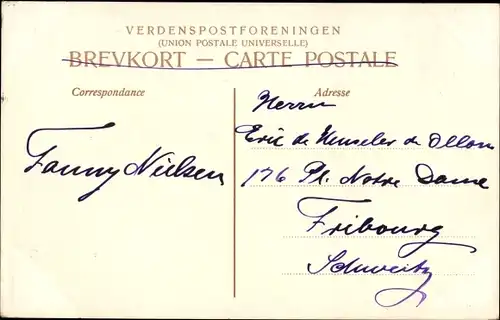 VERDENSPOSTFORENINGEN
(UNION POSTALE UNIVERSELLE)
BREVKORT — CARTE POSTALE
Correspondance
Adresse
Fanny Nielsen
Herrn
Eric de
176 Pl. Notre Dame
Fribourg
Schweitz